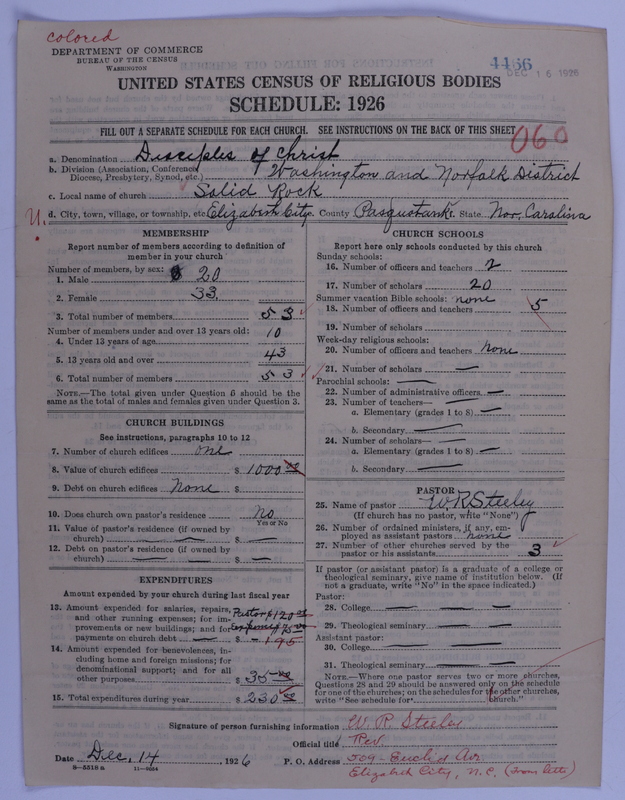 colored
DEPARTMENT OF COMMERCE
BUREAU OF THE CENSUS
WASHINGTON
4466
DEC 16 1926
UNITED STATES CENSUS OF RELIGIOUS BODIES
SCHEDULE: 1926
FILL OUT A SEPARATE SCHEDULE FOR EACH CHURCH. SEE INSTRUCTIONS ON THE BACK OF THIS SHEET
060
a. Denomination Disciples of Christ
b. Division (Association, Conference, Diocese, Presbytery, Synod, etc.) Washington and Norfolk District
c. Local name of church Solid Rock
U. d. City, town, village, or township, etc. Elizabeth City e. County Pasquotank f. State Nor. Carolina
MEMBERSHIP
Report number of members according to definition of
member in your church
Number of members, by sex:
1. Male 20
2. Female 33
3. Total number of members 53
Number of members under and over 13 years old:
4. Under 13 years of age 10
5. 13 years old and over 43
6. Total number of members 53
NOTE.—The total given under Question 6 should be the
same as the total of males and females given under Question 3.
CHURCH BUILDINGS
See instructions, paragraphs 10 to 12
7. Number of church edifices one
8. Value of church edifices $ 1000.00
9. Debt on church edifices None $
10. Does church own pastor's residence No
Yes or No
11. Value of pastor's residence (if owned by
church) $ —
12. Debt on pastor's residence (if owned by
church) $ —
EXPENDITURES
Amount expended by your church during last fiscal year
13. Amount expended for salaries, repairs, Pastor $120.00
and other running expenses; for im-
provements or new buildings; and for $75.00
payments on church debt $ 195
14. Amount expended for benevolences, in-
cluding home and foreign missions; for
denominational support; and for all
other purposes $ 35.00
15. Total expenditures during year $ 230.00
CHURCH SCHOOLS
Report here only schools conducted by this church
Sunday schools:
16. Number of officers and teachers 2
17. Number of scholars 20
Summer vacation Bible schools: none
18. Number of officers and teachers 5
19. Number of scholars
Week-day religious schools:
20. Number of officers and teachers none
21. Number of scholars —
Parochial schools: —
22. Number of administrative officers —
23. Number of teachers—
a. Elementary (grades 1 to 8) —
b. Secondary —
24. Number of scholars—
a. Elementary (grades 1 to 8) —
b. Secondary —
PASTOR
25. Name of pastor W. R. Steeley
(If church has no pastor, write "None")
26. Number of ordained ministers, if any, em-
ployed as assistant pastors none
27. Number of other churches served by the
pastor or his assistants 3
If pastor (or assistant pastor) is a graduate of a college or
theological seminary, give name of institution below. (If
not a graduate, write "No" in the space indicated.)
Pastor:
28. College — — —
29. Theological seminary — — —
Assistant pastor:
30. College — — —
31. Theological seminary — — —
NOTE.—Where one pastor serves two or more churches,
Questions 28 and 29 should be answered only on the schedule
for one of the churches; on the schedules for the other churches,
write "See schedule for church."
Signature of person furnishing information W. R. Steeley
Official title Rev.
Date Dec. 14, 1926
P. O. Address 509 - Euclid Av.
Elizabeth City, N.C. (From letter)
8—5518a 11—9654